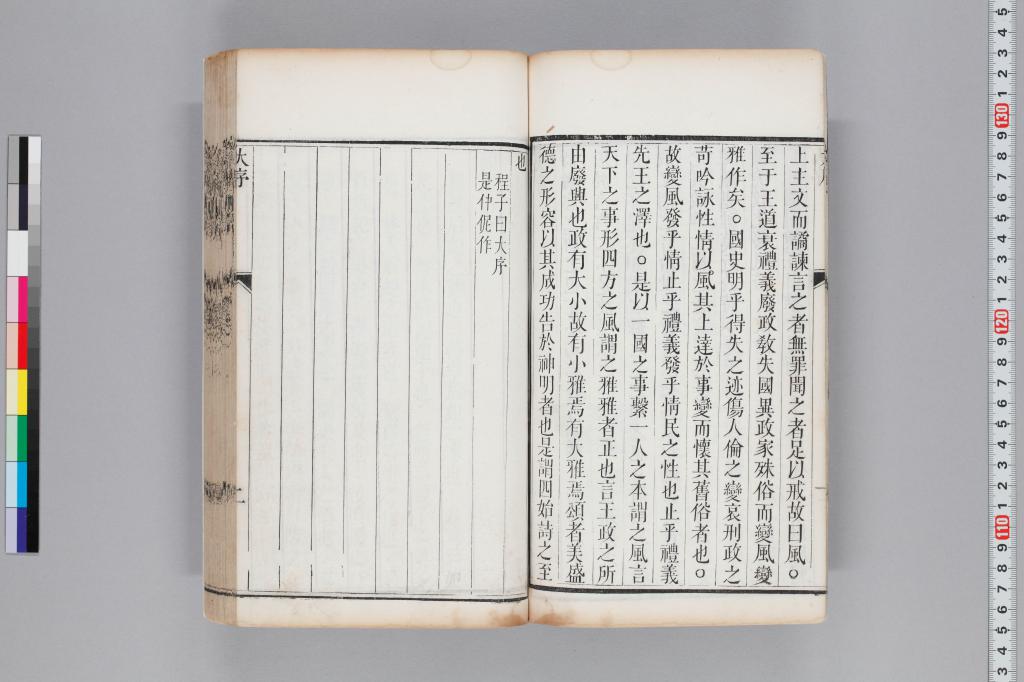 上主文而譎諫言之者無罪聞之者足以戒故曰風。
至于王道衰禮義廢政敎失國異政家殊俗而變風變
雅作矣。國史明乎得失之迹傷人倫之變哀刑政之
苛吟詠性情以風其上達於事變而懷其舊俗者也。
故變風發乎情止乎禮義發乎情民之性也止乎禮義
先王之澤也。是以一國之事繫一人之本謂之風言
天下之事形四方之風謂之雅雅者正也言王政之所
由廢興也政有大小故有小雅焉有大雅焉頌者美盛
德之形容以其成功告於神明者也是謂四始詩之至
也
程子曰大序
是仲伲作
大序
二